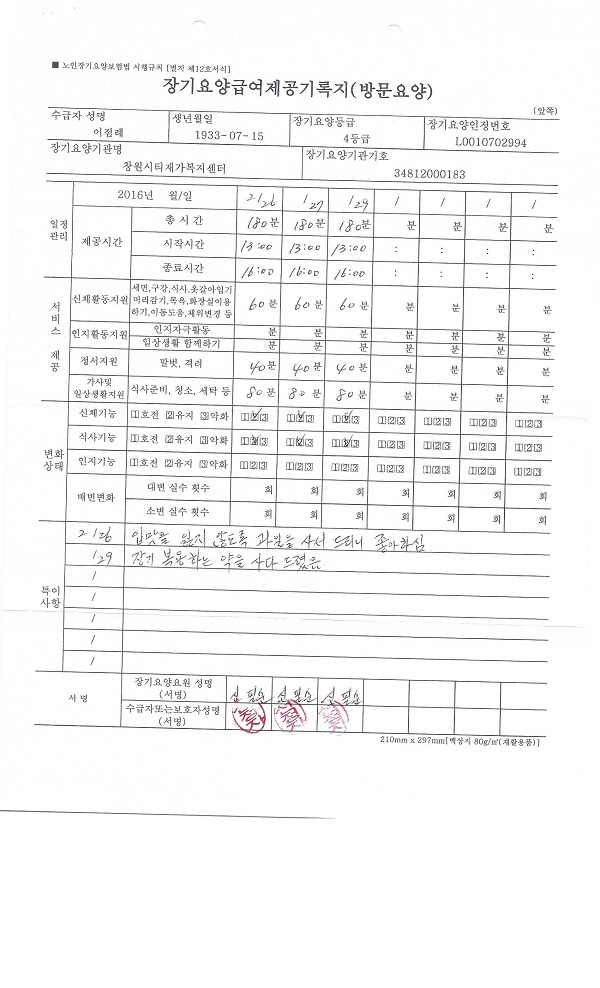 ■ 노인장기요양보험법 시행규칙 [별지 제12호서식]
장기요양급여제공기록지(방문요양)
(앞쪽)
수급자 성명 생년월일 장기요양등급 장기요양인정번호
이점례 1933-07-15 4등급 L0010702994
장기요양기관명 장기요양기관기호
창원시티재가복지센터 34812000183
일정관리 2016년 월/일 2/26 /27 /29 / / / /
제공시간 총 시 간 180분 180분 180분 분 분 분 분
시작시간 13:00 13:00 13:00 : : : :
종료시간 16:00 16:00 16:00 : : : :
서비스 제공 신체활동지원 세면,구강,식사,옷갈아입기
머리감기,목욕,화장실이용
하기,이동도움,체위변경 등 60분 60분 60분 분 분 분 분
인지활동지원 인지자극활동 분 분 분 분 분 분 분
일상생활 함께하기 분 분 분 분 분 분 분
정서지원 말벗, 격려 40분 40분 40분 분 분 분 분
가사및
일상생활지원 식사준비, 청소, 세탁 등 80분 80분 80분 분 분 분 분
변화상태 신체기능 1호전 2유지 3악화 123 123 123 123 123 123 123
식사기능 1호전 2유지 3악화 123 123 123 123 123 123 123
인지기능 1호전 2유지 3악화 123 123 123 123 123 123 123
배변변화 대변 실수 횟수 회 회 회 회 회 회 회
소변 실수 횟수 회 회 회 회 회 회 회
특이사항 2/26 입맛을 잃지 않도록 과일을 사서 드리니 좋아하심.
/29 장기 복용하는 약을 사다 드렸음
/
/
/
/
서 명 장기요양요원 성명
(서명) 신필순 신필순 신필순
수급자또는보호자성명
(서명)
210mm x 297mm[백상지 80g/㎡(재활용품)]